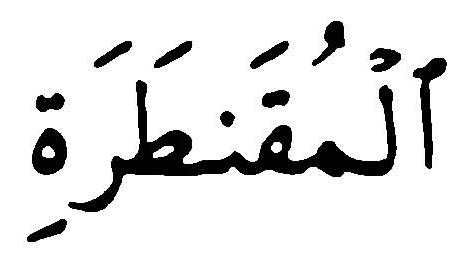 ٱلْمُقَنطَرَةِ